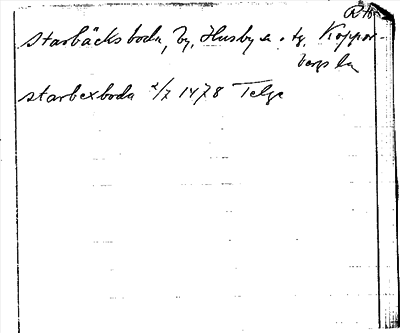 Starbäcksboda, by, Husby s. o tg. Koppar-
bergs län
starbexboda 2/7 1478 Telge